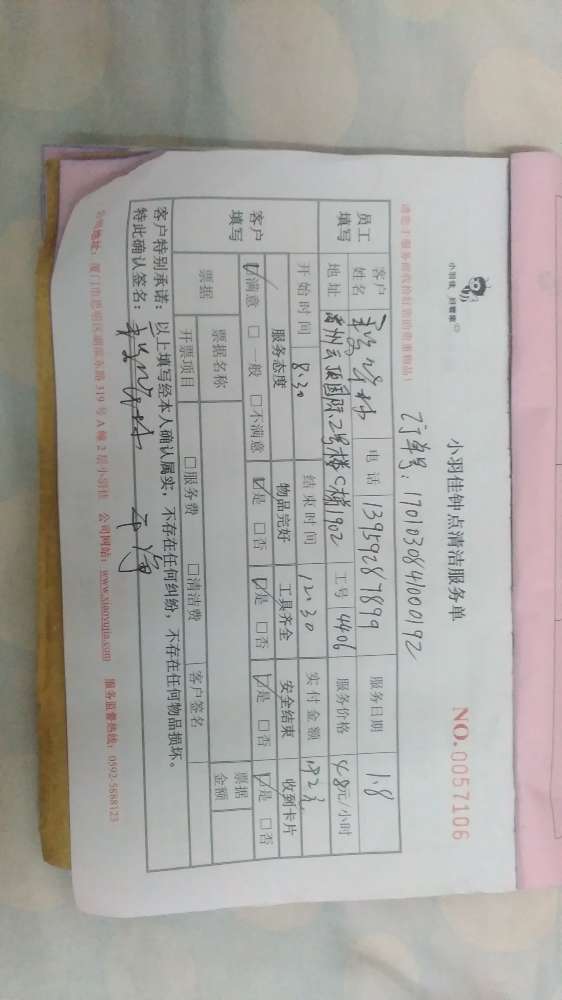 小羽佳 到嘴象
小羽佳钟点清洁服务单
NO. 0057106
订单号：17010308410001 92
员工填写
客户姓名
电话 13959287899
服务日期 1.8
地址 禹州云顶国际2号楼C梯1902
工号 4406
服务价格 48元/小时
开始时间 8.30
结束时间 12.30
实付金额 192元
客户填写
服务态度 物品完好 工具齐全 安全结束 收到卡片
☑满意 □一般 □不满意 ☑是 □否 ☑是 □否 ☑是 □否 ☑是 □否
票据
票据名称
票据金额
开票项目 □服务费 □清洁费 客户签名
客户特别承诺：以上填写经本人确认属实，不存在任何纠纷，不存在任何物品损坏。
特此确认签名：
公司地址：厦门市思明区湖滨东路319号A幢2层小羽佳 公司网站：www.xiaoyujia.com 服务监督热线：0592-5888123